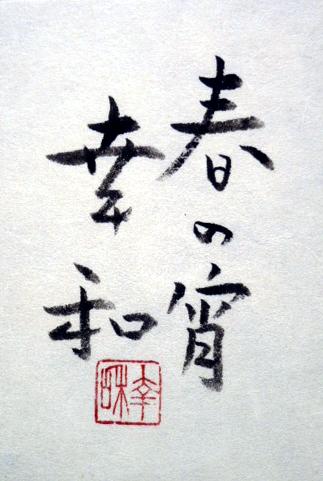 春の宵
幸和
幸
和